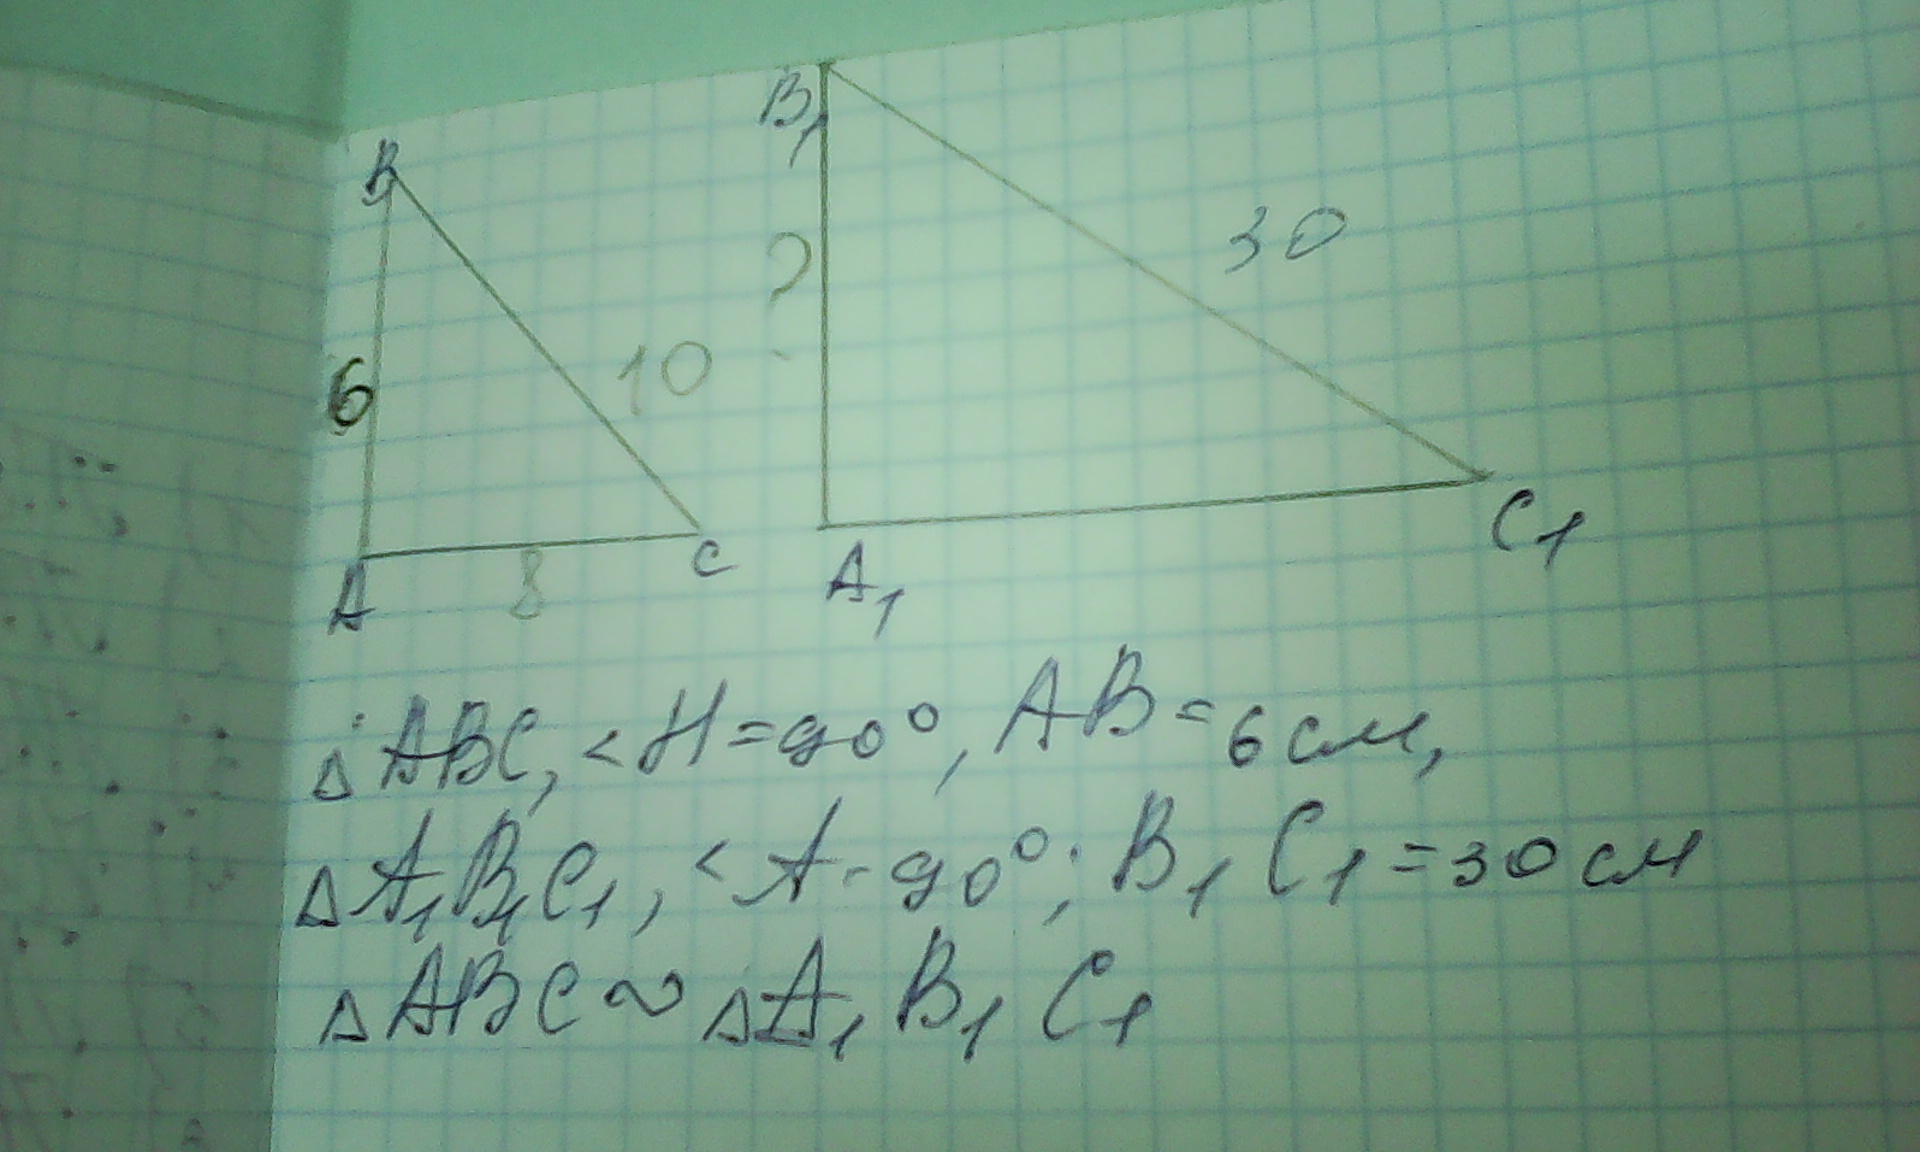 B
B₁
30
?
10
6
8
A
C
A₁
C₁
△ABC, <H=90°, AB=6см,
△A₁B₁C₁, <A-90°; B₁C₁=30см
△ABC~△A₁B₁C₁